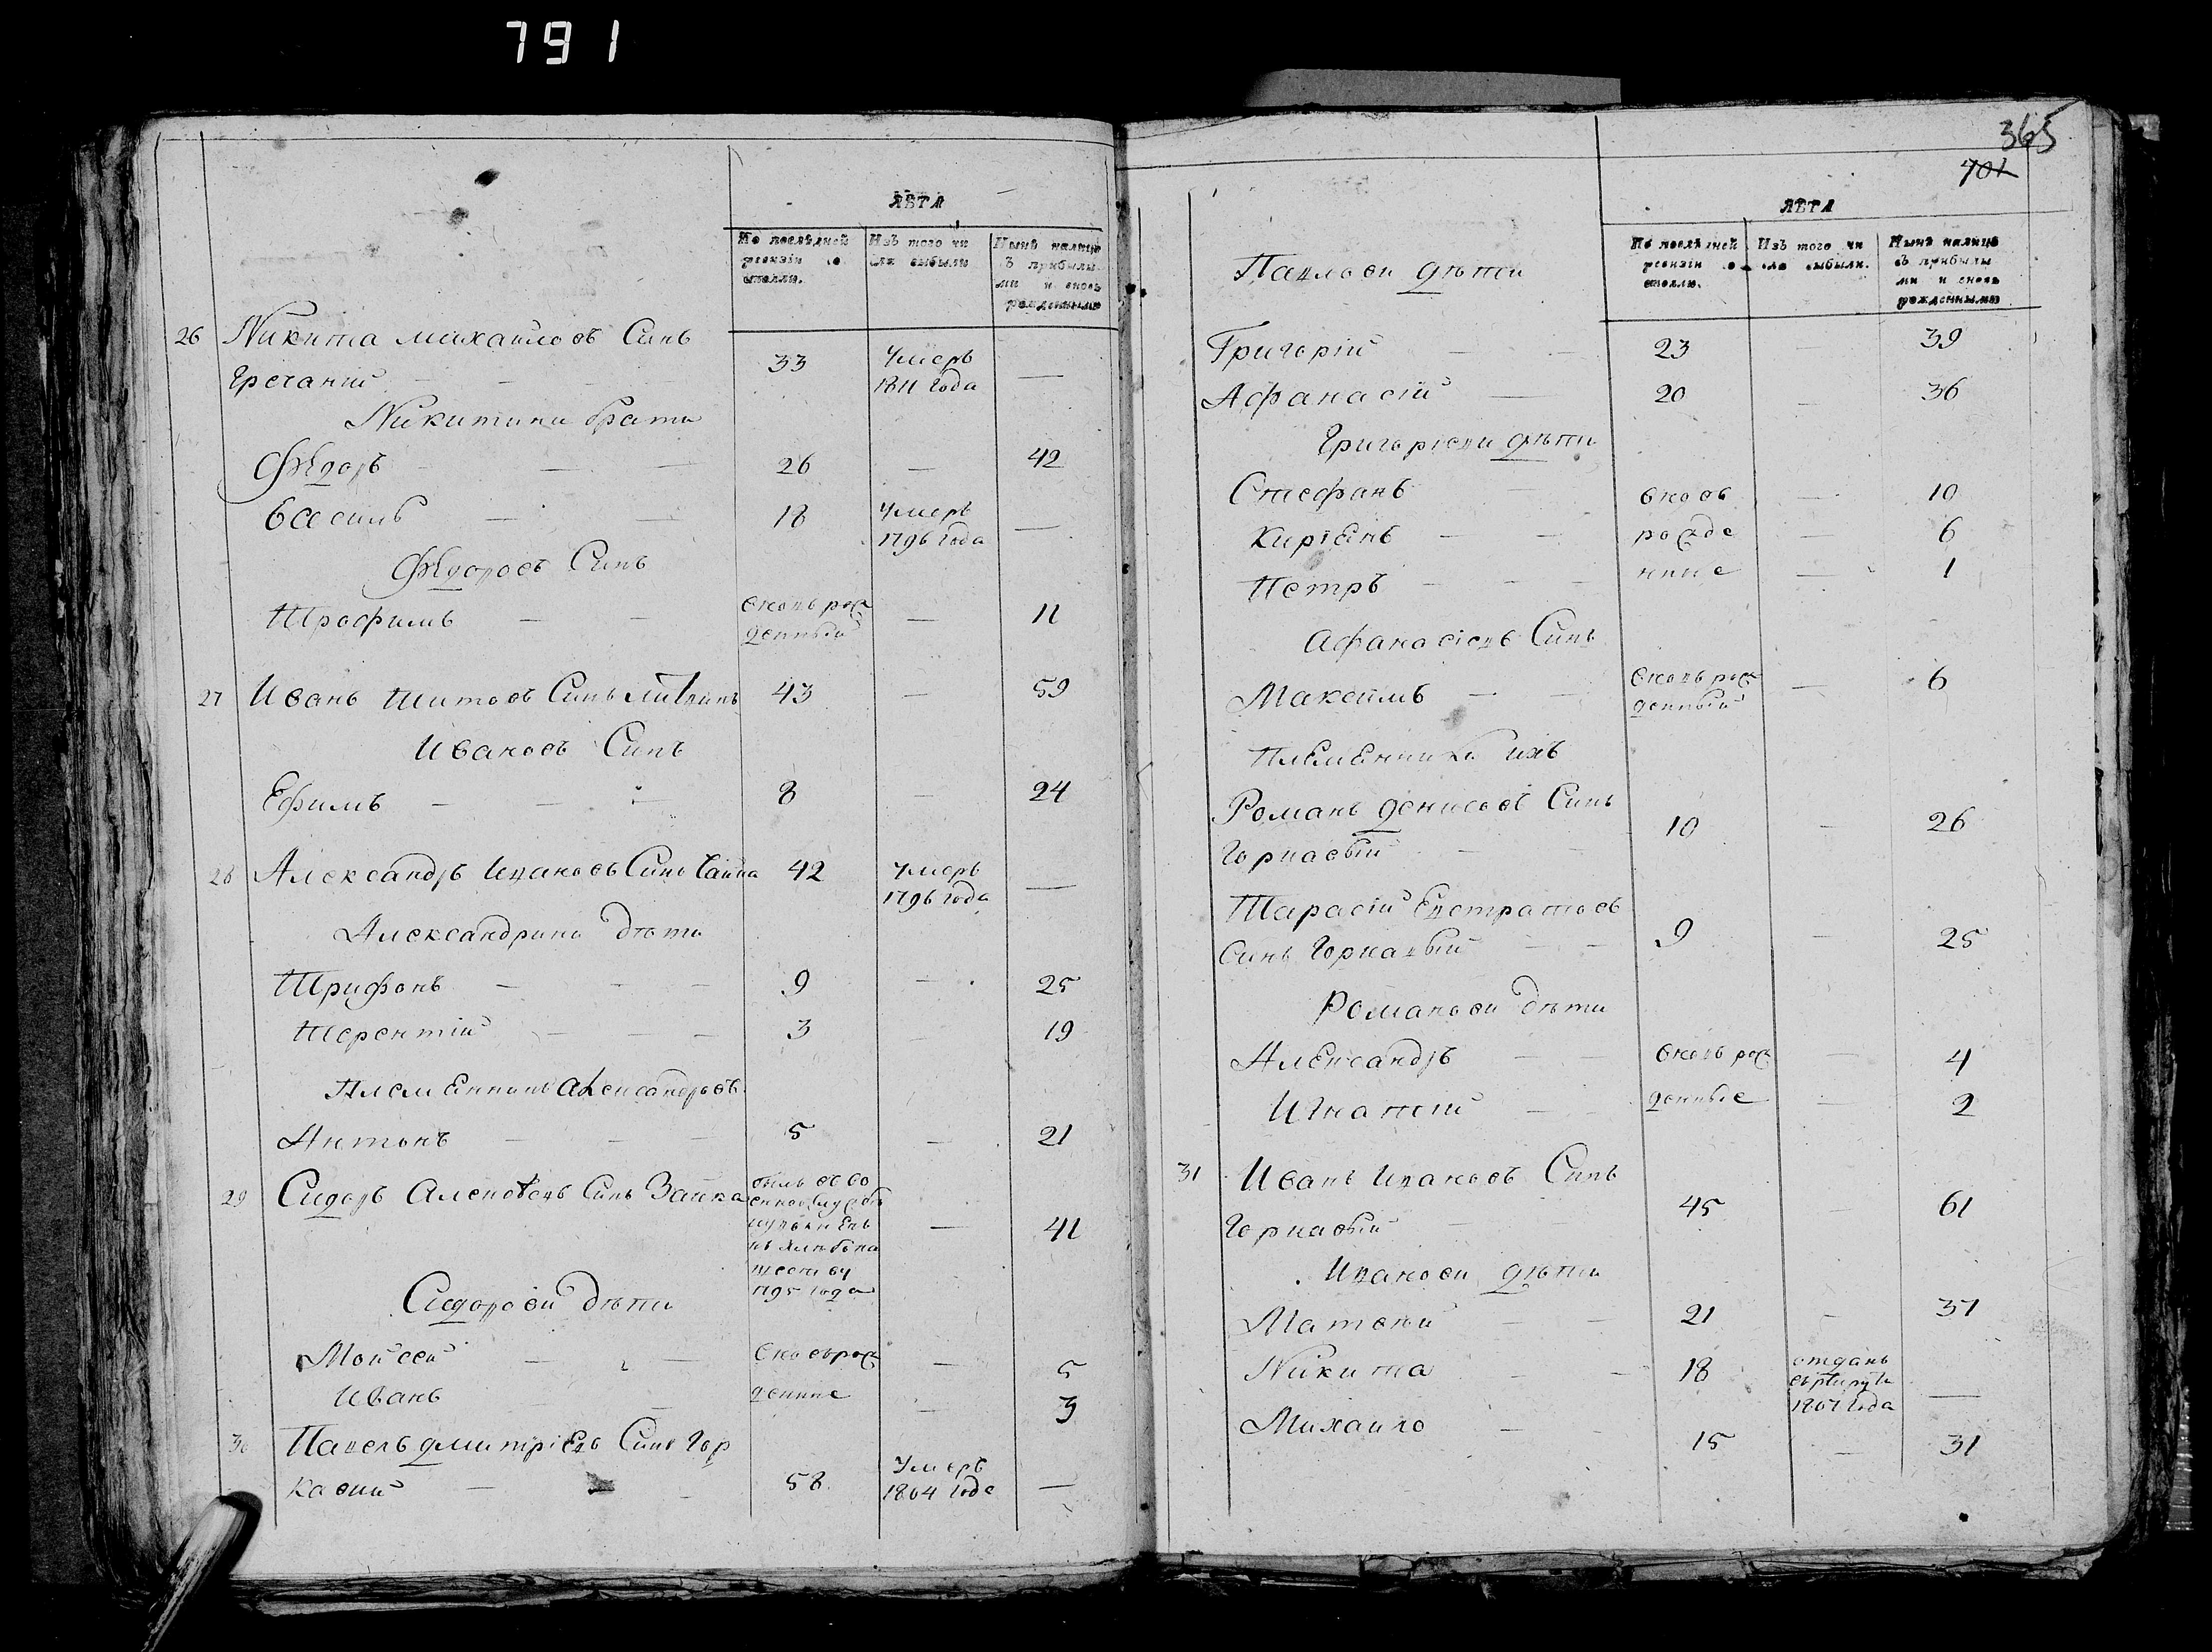 791
ЛѢТА
По послѣдней ревизіи состояло.
Изъ того числа выбыли
Нынѣ налицо съ прибылыми и вновь рожденными
26 Никита михаиловъ Синъ
Гречаній — — 33 Умеръ 1811 года —
Никитини брати
Өедоръ — — 26 — 42
Василь — — 18 Умеръ 1796 года —
Өедоровъ Синъ
Трофимъ — — вновь рожденный — 11
27 Иванъ Титовъ Синъ 43 — 59
Ивановъ Синъ
Ефимъ — — — 8 — 24
28 Александръ Ивановъ Синъ 42 Умеръ 1796 года —
Александрини дѣти
Трифонъ — — — 9 — 25
Терентій — — — 3 19
Племенникъ Александровъ
Антонъ — — — 5 — 21
29 Сидоръ Алексѣевъ Синъ Заика
1795 года — 41
Сидорови дѣти
Мойсей — — — вновь рож — 5
Иванъ — — денніе — 3
30 Павелъ дмитріевъ Синъ Гор
кавий — — 58 Умеръ 1804 годе —
365
701
ЛѢТА
По послѣдней ревизіи состояло.
Изъ того числа выбыли.
Нынѣ налицо съ прибылыми и вновь рожденными
Павлови дѣти
Григорій — — 23 — 39
Афанасій — 20 — 36
Григоріеви дѣти
Стефанъ — вновь — 10
Киріянъ — — рожде — 6
Петръ — — — нние — 1
Афанасіевъ Синъ
Максимъ — — вновь рожденный — 6
Племенники ихъ
Романъ денисовъ Синъ
Горкавый — — 10 — 26
Тарасій Евстратовъ
Синъ Горкавый — — 9 — 25
Романови дѣти
Александръ — — вновь рож 4
Игнатій — — денные — 2
31 Иванъ Ивановъ Синъ
Горкавый — 45 — 61
Иванови дѣти
Матвѣй — — 21 — 37
Никита — — 18 отданъ врекруты 1807 года —
Михайло — — 15 — 31